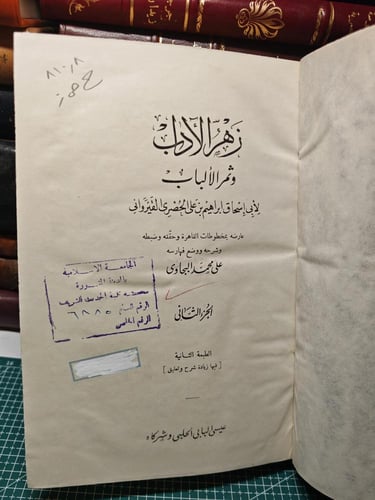 ٨١٠٫٨
زهر الآداب
وثمر الألباب
لأبي إسحاق ابراهيم بن علي الحصري القيرواني
عارضه بمخطوطات القاهرة وحققه وضبطه
وشرحه ووضع فهارسه
علي محمد البجاوي
الجامعة الإسلامية
بالمدينة المنورة
مكتبة كلية الحديث الشريف
الرقم العام ٦٨٨٥
الرقم الخاص
الجزء الثاني
الطبعة الثانية
[ فيها زيادة شرح وتعليق ]
عيسى البابي الحلبي وشركاه